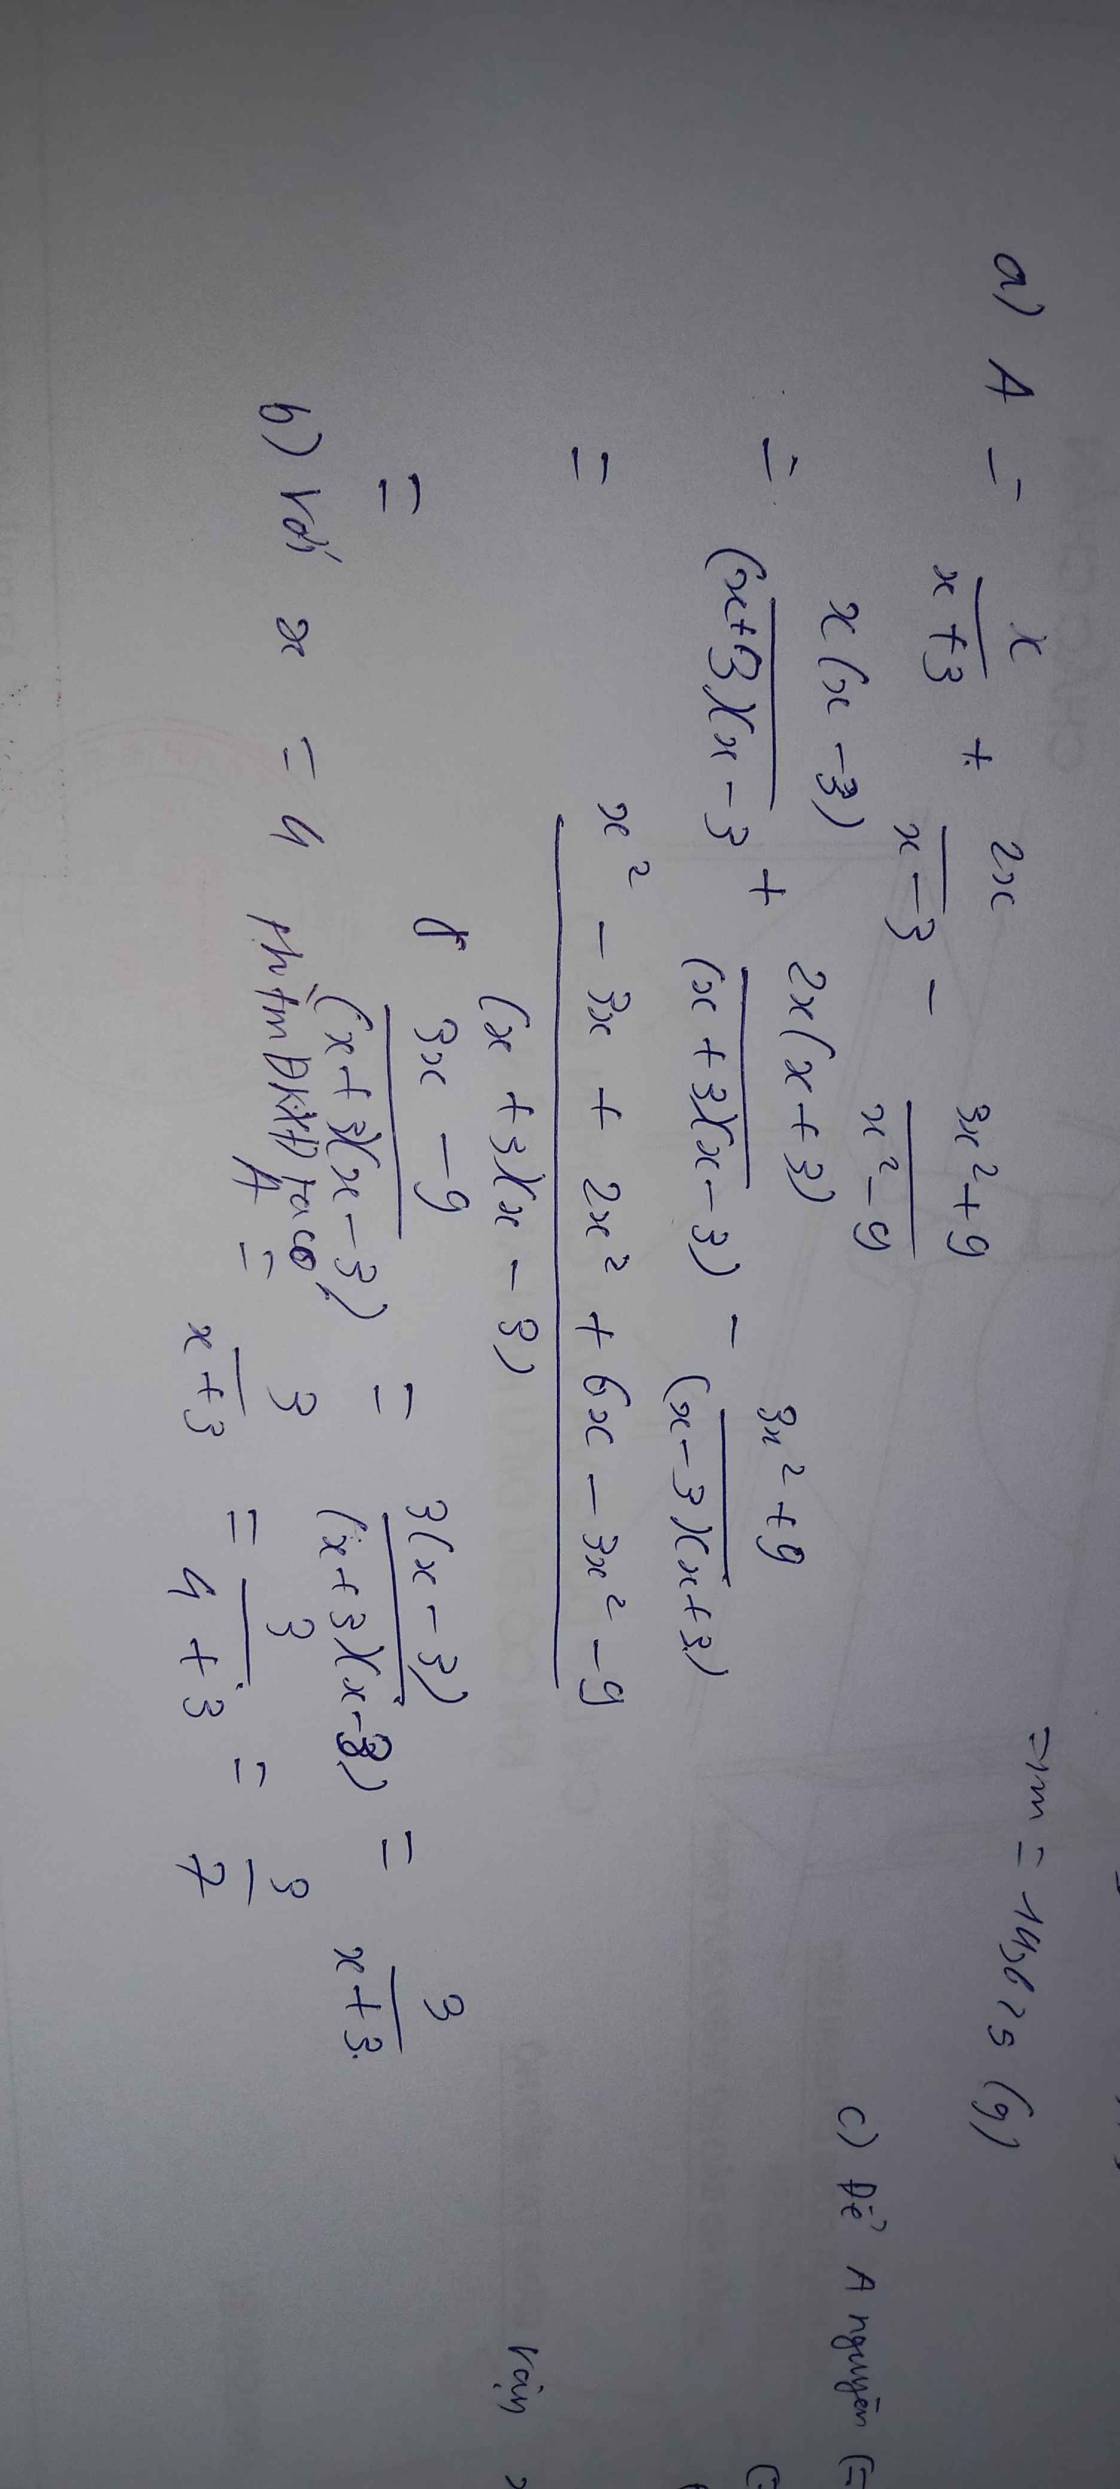 => m = 14,625 (g)
a) A = x/(x+3) + 2x/(x-3) - (3x² + 9)/(x² - 9)
= x(x - 3)/((x+3)(x - 3) + 2x(x+3)/((x+3)(x-3)) - (3x² + 9)/((x-3)(x+3))
= (x² - 3x + 2x² + 6x - 3x² - 9)/((x+3)(x-3))
= (3x - 9)/((x+3)(x-3)) = 3(x-3)/((x+3)(x-3)) = 3/(x+3)
b) Với x = 4 ĐKXĐ ta có
A = 3/(x+3) = 3/(4+3) = 3/7
c) Để A nguyên
Vậy